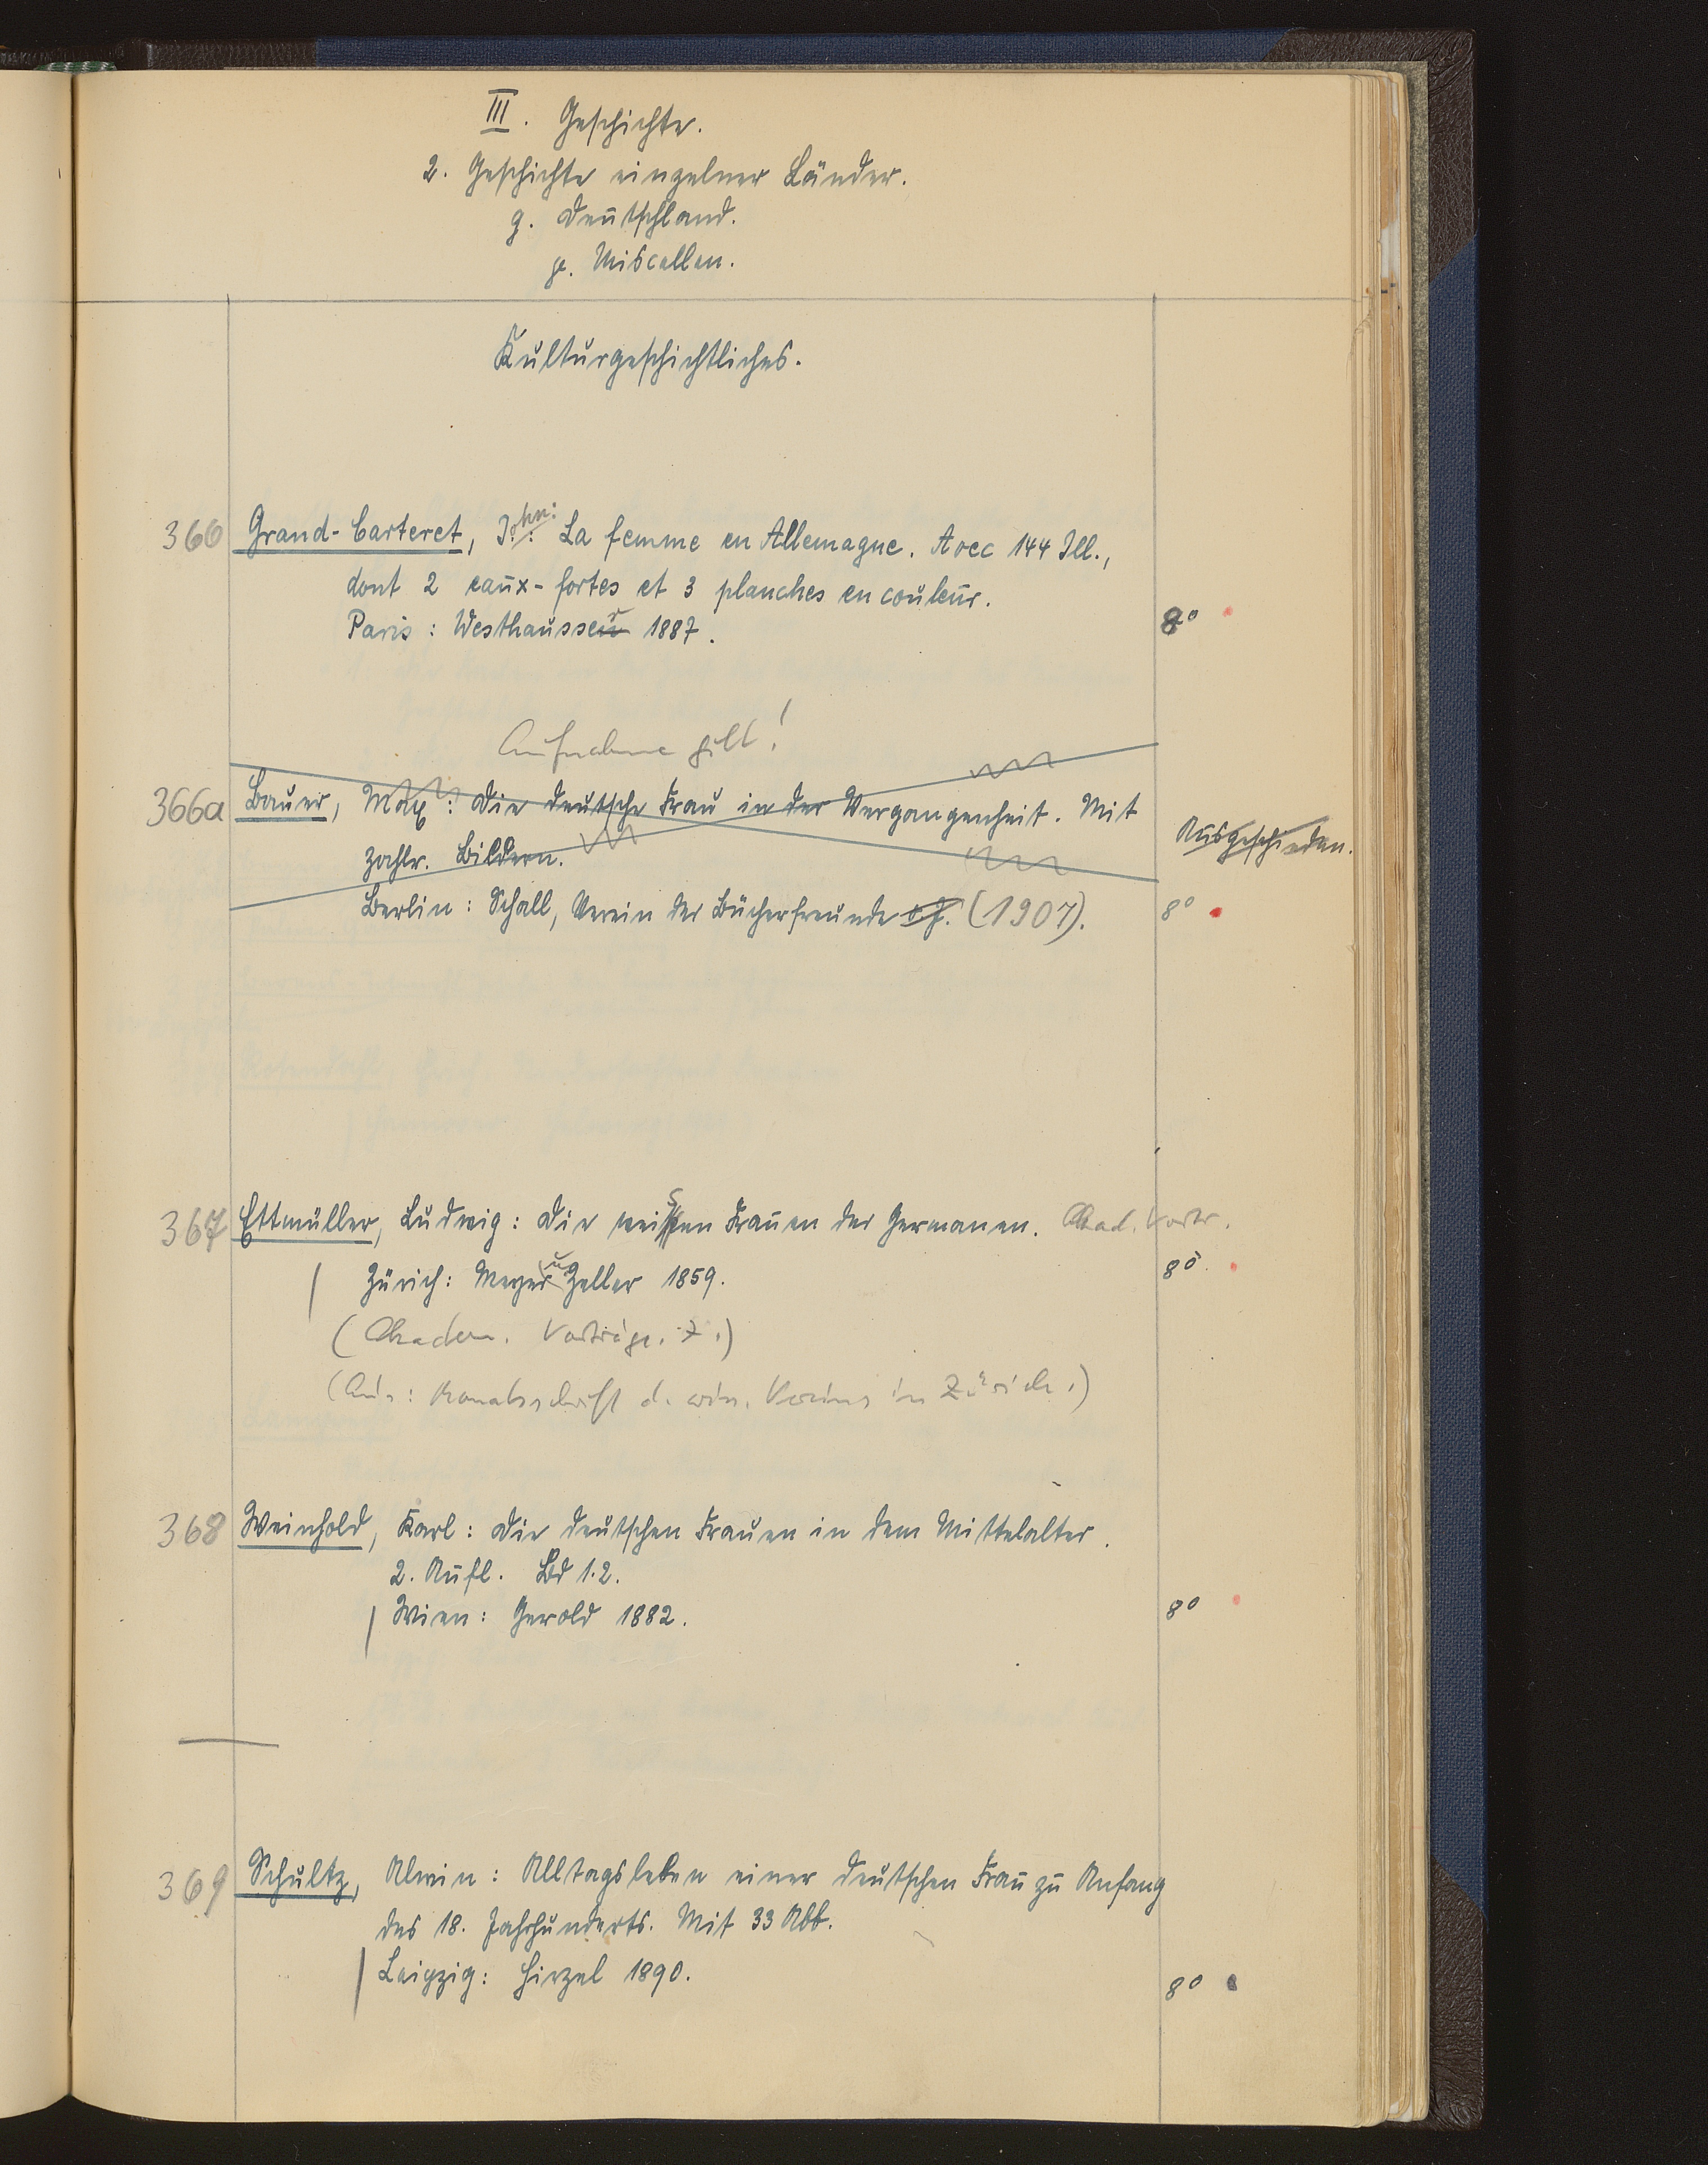 III. Geschichte.
2. Geschichte einzelner Länder.
g. Deutschland.
γ. Miscellen.
Kulturgeschichtliches.
366 Grand-Carteret, John: La femme en Allemagne. Avec 144 Ill.,
dont 2 eaux-fortes et 3 planches en couleur.
Paris: Westhausser 1887. 8°
Aufnahme gilt!
366a Bauer, Max: Die deutsche Frau in der Vergangenheit. Mit
zahlr. Bildern. Ausgeschieden.
Berlin: Schall, Verein der Bücherfreunde o.J. (1907). 8°
367 Ettmüller, Ludwig: Die weisen Frauen der Germanen. Akad. Vortr.
Zürich: Meyer u. Zeller 1859. 8°
(Akadem. Vorträge. 7.)
(Aus: Monatsschrift d. wiss. Vereins in Zürich.)
368 Weinhold, Karl: Die deutschen Frauen in dem Mittelalter.
2. Aufl. Bd 1.2.
Wien: Gerold 1882. 8°
369 Schultz, Alwin: Alltagsleben einer deutschen Frau zu Anfang
des 18. Jahrhunderts. Mit 33 Abb.
Leipzig: Hirzel 1890. 8°